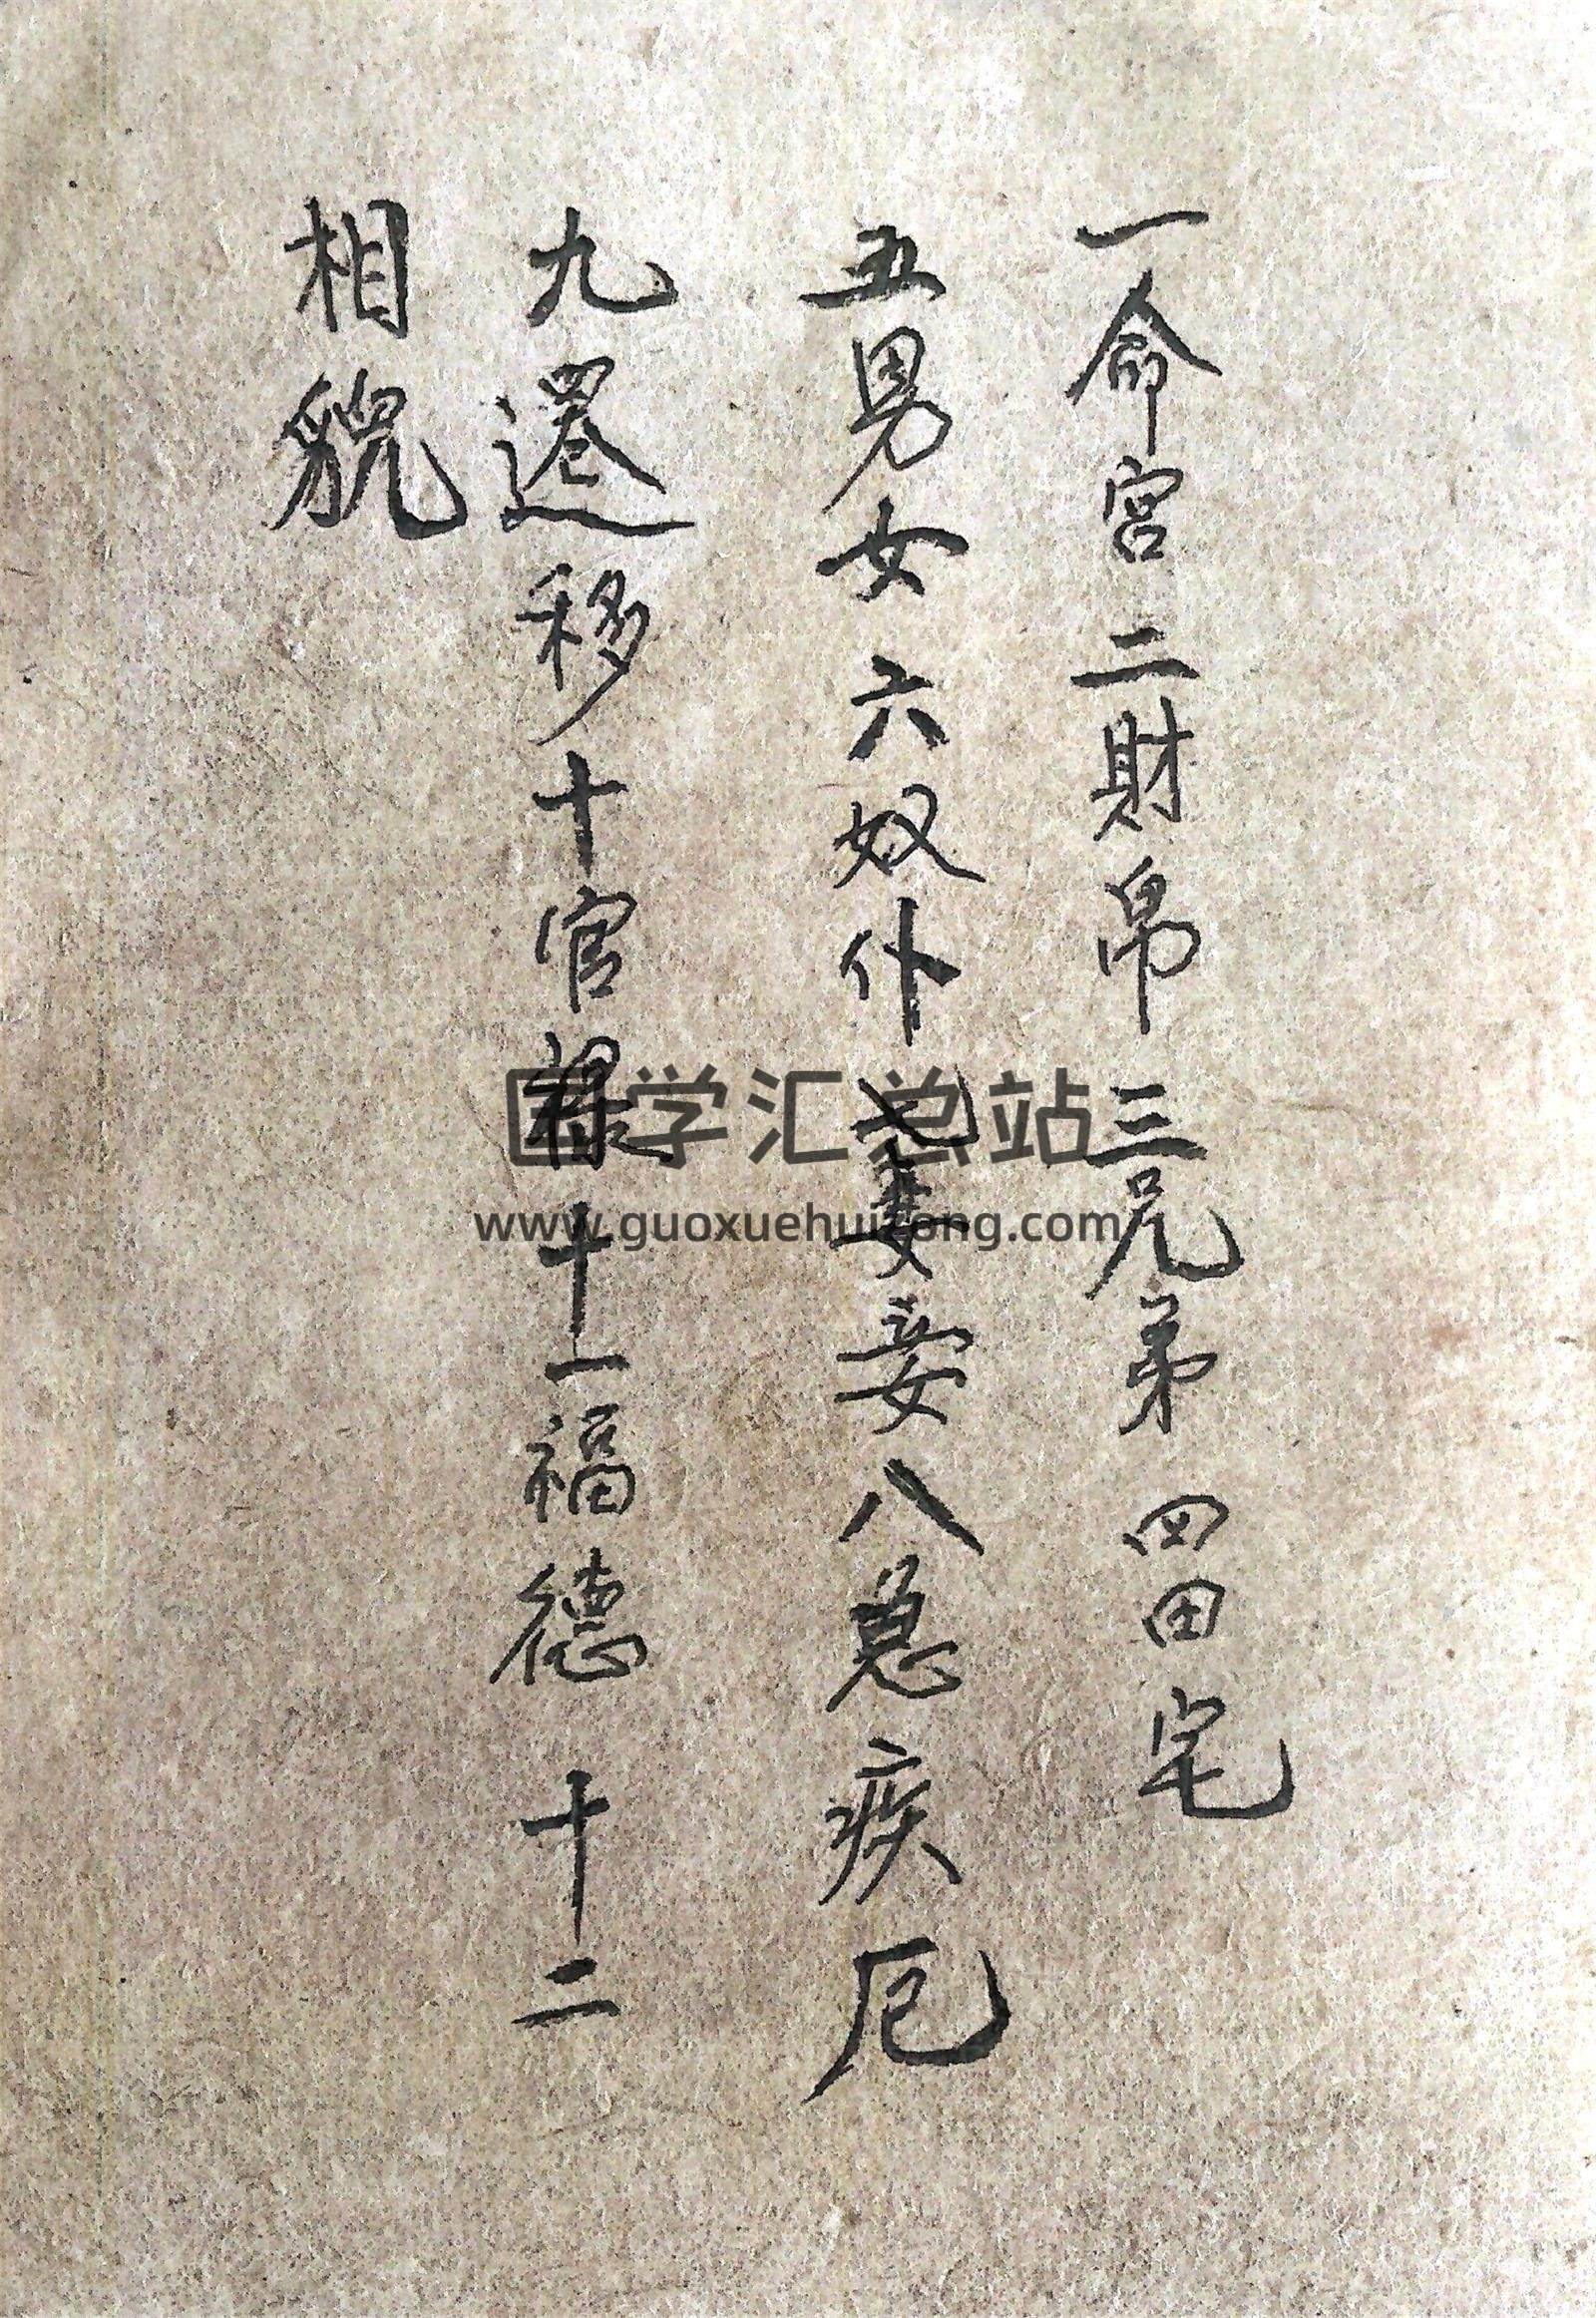 一命宮二財帛三兄弟四田宅
五男女六奴仆七妻妾八急疾厄
九遷移十官禄十一福德十二
相貌
国学汇总站
www.guoxuehuizong.com